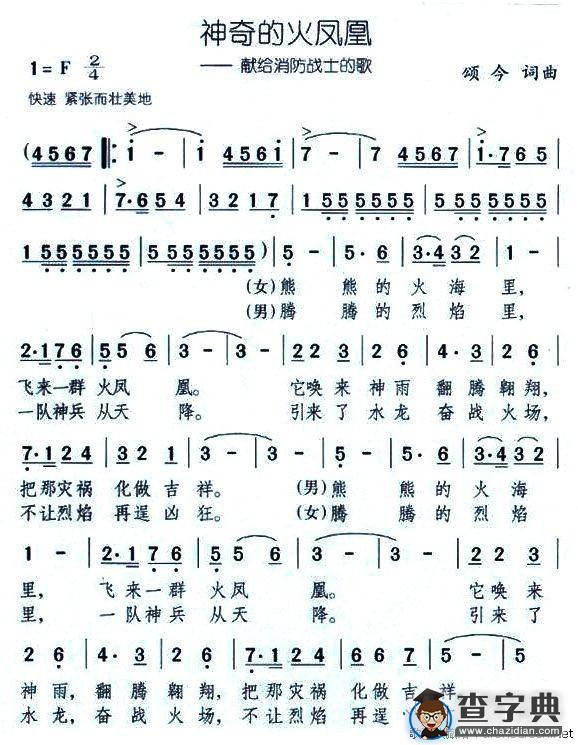 神奇的火凤凰
1=F 2/4 —— 献给消防战士的歌 颂今 词曲
快速 紧张而壮美地
(4567 |: i - | i 4567i | 7 - | 7 4567 | i·765 |
4321 | 7·654 | 3217 | 1555555 | 1555555 |
1555555 | 1555555) | 5 - | 5·6 | 3·432 | 1 - |
(女)熊 熊的火海里,
(男)腾 腾的烈焰里,
2·176 | 556 | 3 - | 3 - | 223 | 26 | 4·3 | 26 |
飞来一群 火凤 凰。 它唤来神雨 翻腾翱翔,
一队神兵从天 降。 引来了水龙 奋战火场,
7·124 | 312 | 3 - | 3 - | 5 - | 5·6 | 3·432 |
把那灾祸 化做吉祥。 (男)熊 熊的火海
不让烈焰 再逞凶狂。 (女)腾 腾的烈焰
1 - | 2·176 | 556 | 3 - | 3 - | 223 |
里, 飞来一群 火凤 凰。 它唤来
里, 一队神兵 从天 降。 引来了
26 | 4·3 | 26 | 7·124 | 312 | 5 - | 5
神雨,翻腾翱翔,把那灾祸 化做吉祥
水龙,奋战火场,不让烈焰 再逞
查字典
www.chazidian.com